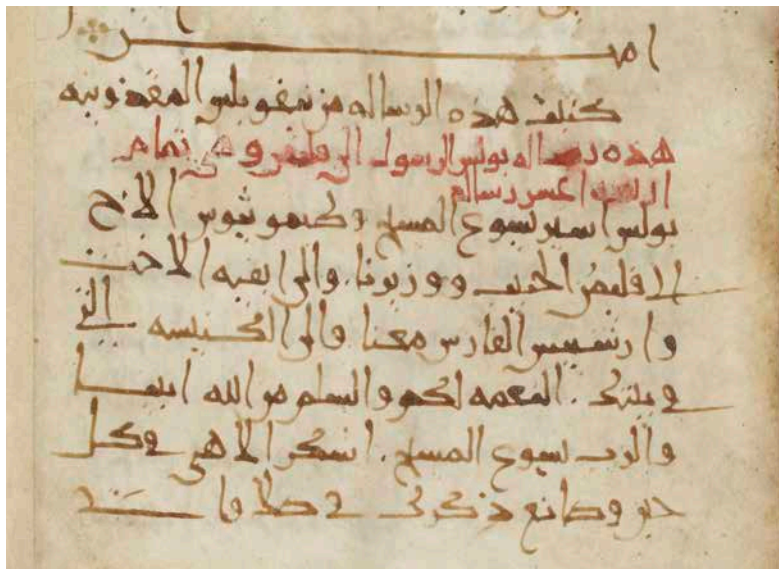 امين
كتبت هذه الرساله من نيقوبلس المقذونيه
هذه رساله بولس الرسول الى فليمن وهي تمام
اربعه اعشر رساله
بولس اسير يسوع المسيح وطيموثيوس الاخ
الا فليمن الحبيب وعوزنا والى ابفيه الاخت
وارشبس الفارس معنا والى الكنيسه التي
في بيتك . النعمه لكم والسلم من الله ابينا
والرب يسوع المسيح . اشكر الاهي في كل
حين وصانع ذكرك في صلاوات